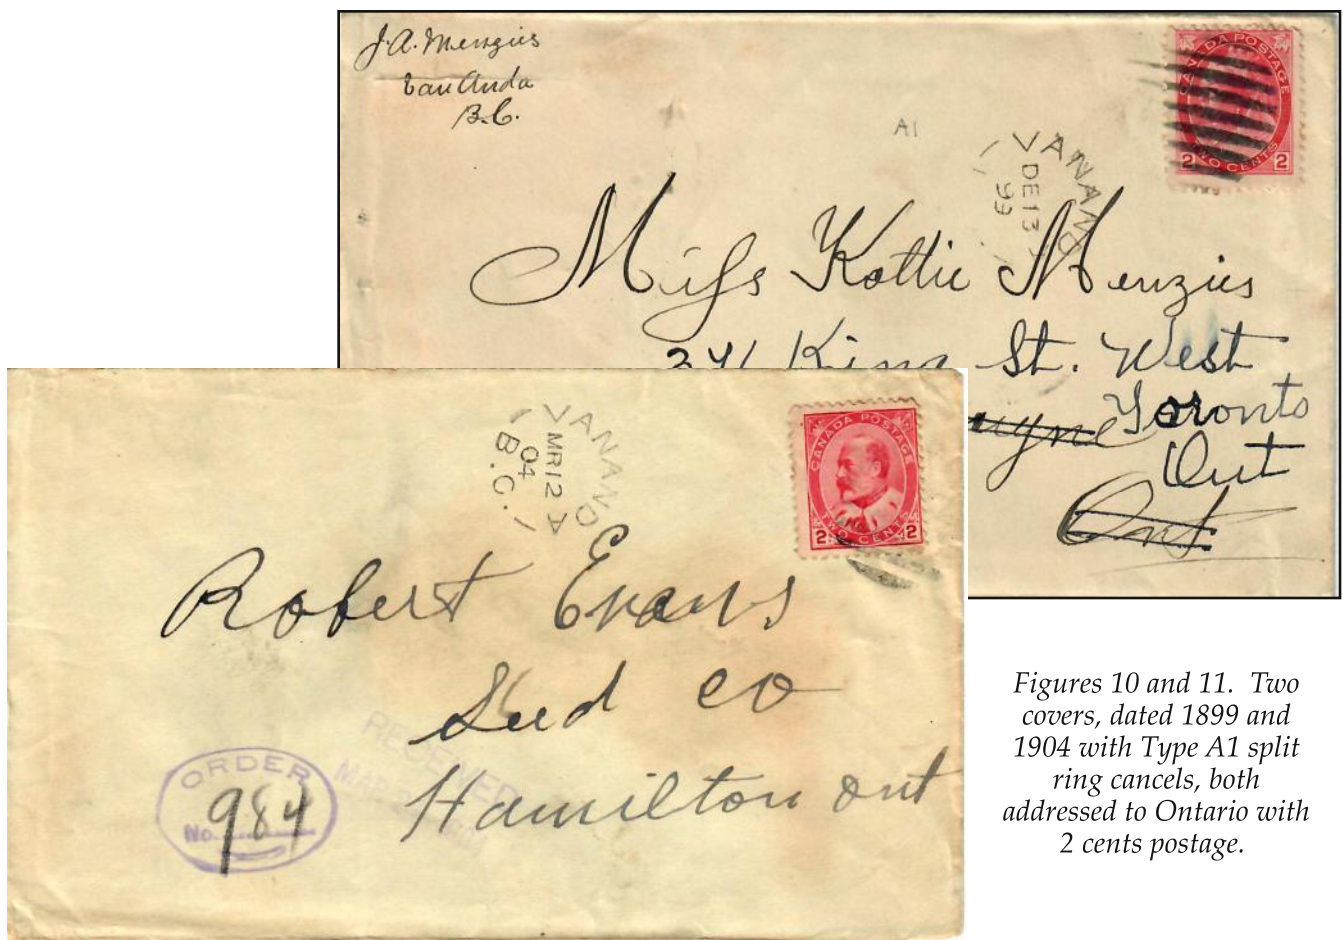 J. A. Menzies
Van Anda
B.C.
CANADA POSTAGE
TWO CENTS
2 2
A1
VANAND
DE 13
99
Miss Kattie Menzies
341 King St. West
Toronto
Ont
Ont
VANANDA
MR 12 A
04
B.C.
CANADA POSTAGE
TWO CENTS
2 2
Robert Evans
Seed co
Hamilton ont
RECEIVED
MAR
ORDER
No. 984
Figures 10 and 11. Two
covers, dated 1899 and
1904 with Type A1 split
ring cancels, both
addressed to Ontario with
2 cents postage.